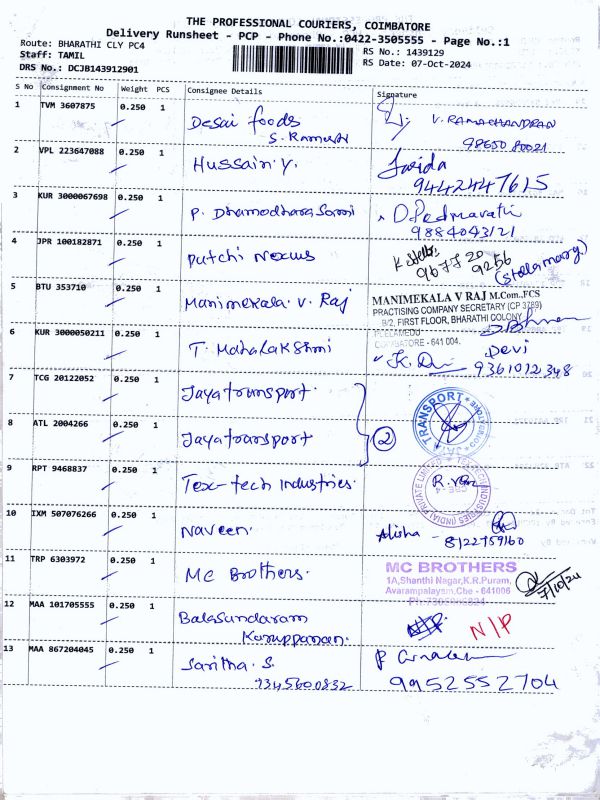 THE PROFESSIONAL COURIERS, COIMBATORE
Delivery Runsheet - PCP - Phone No.:0422-3505555 - Page No.:1
Route: BHARATHI CLY PC4
RS No.: 1439129
Staff: TAMIL
RS Date: 07-Oct-2024
DRS No.: DCJB143912901
S No Consignment No Weight PCS Consignee Details Signature
1 TVM 3607875 0.250 1 Desai foods
S. Ramesh
V. RAMACHANDRAN
98650 80021
2 VPL 223647088 0.250 1 Hussain.y. Farida
9442447615
3 KUR 3000067698 0.250 1 P. Dhamodhara Sami D. Padmavathi
9884043121
4 JPR 100182871 0.250 1 Dutchi Nexus
96777 20
9256
(Stella mary.)
5 BTU 353710 0.250 1 Manimekala. V. Raj
MANIMEKALA V RAJ M.Com.,FCS
PRACTISING COMPANY SECRETARY (CP 3789)
B/2, FIRST FLOOR, BHARATHI COLONY
PEELAMEDU
COIMBATORE - 641 004.
6 KUR 3000050211 0.250 1 T. Mahalakshmi
Devi
9361012348
7 TCG 20122052 0.250 1 Jaya transport.
8 ATL 2004266 0.250 1 Jaya transport
2
JAYA TRANSPORT COIMBATORE
9 RPT 9468837 0.250 1 Tex-tech industries.
INDUSTRIES (INDIA) PRIVATE LIMITED
CBE-14
10 IXM 507076266 0.250 1 Naveen. Alisha -
8122759160
11 TRP 6303972 0.250 1 MC Brothers.
MC BROTHERS
1A,Shanthi Nagar,K.R.Puram,
Avarampalayam,Cbe - 641006
7/10/24
12 MAA 101705555 0.250 1 Balasundaram
Karuppanan.
N/P N/P
13 MAA 867204045 0.250 1 Saritha. S.
9345600832
9952552704